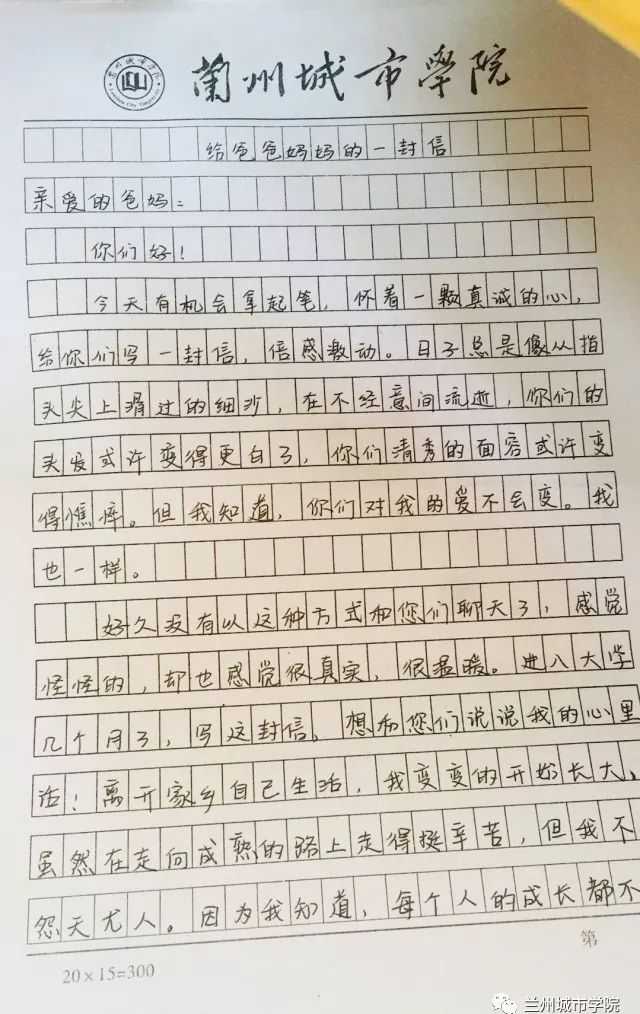 兰州城市学院
给爸爸妈妈的一封信
亲爱的爸妈：
你们好！
今天有机会拿起笔，怀着一颗真诚的心，
给你们写一封信，倍感激动。日子总是像从指
头尖上滑过的细沙，在不经意间流逝，你们的
头发或许变得更白了，你们清秀的面容或许变
得憔悴。但我知道，你们对我的爱不会变。我
也一样。
好久没有以这种方式和您们聊天了，感觉
怪怪的，却也感觉很真实，很温暖。进入大学
几个月了，写这封信，想和您们说说我的心里
话！离开家乡自己生活，我变变的开始长大，
虽然在走向成熟的路上走得挺辛苦，但我不
怨天尤人。因为我知道，每个人的成长都不
第
20×15=300
兰州城市学院